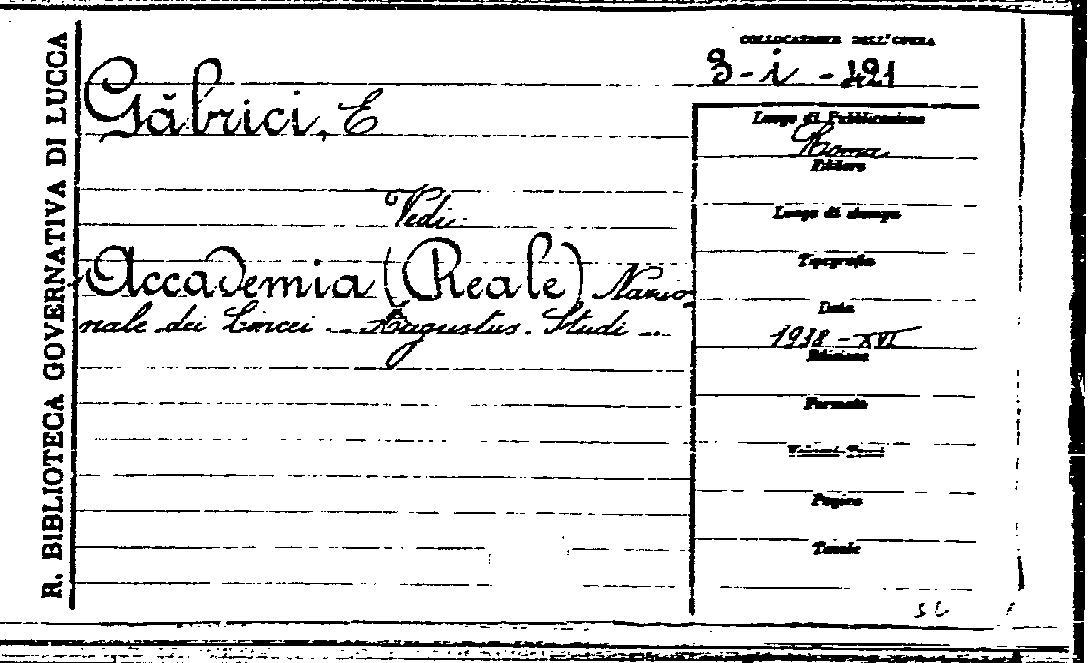 R. BIBLIOTECA GOVERNATIVA DI LUCCA
COLLOCAZIONE DELL'OPERA
3-i-421
Găbrici, E
Luogo di Pubblicazione
Roma
Editore
Vedi
Luogo di stampa
Accademia (Reale) Nazio-
nale dei Lincei - Augustus. Studi ...
Tipografia
Data
1938-XVI
Edizione
Formato
Volumi-Tomi
Pagine
Tavole